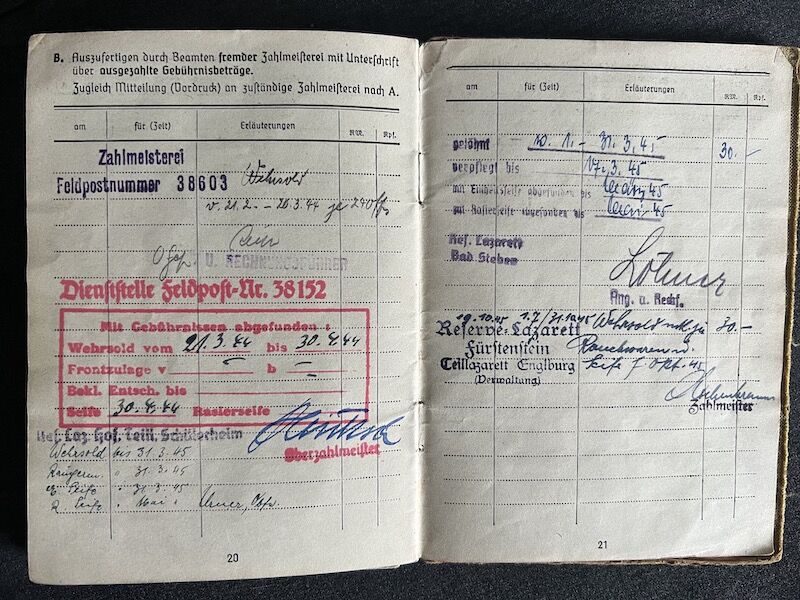 B. Auszufertigen durch Beamten fremder Zahlmeisterei mit Unterschrift
über ausgezahlte Gebührnisbeträge.
Zugleich Mitteilung (Vordruck) an zuständige Zahlmeisterei nach A.
am für (Zeit) Erläuterungen RM. Rpf.
Zahlmeisterei
Feldpostnummer 38603 Wehrsold
v. 21.2. – 20.3.44 je
U. RECHNUNGSFÜHRER
Dienststelle Feldpost-Nr. 38152
Mit Gebührnissen abgefunden:
Wehrsold vom 21.3.44 bis 30.4.44
Frontzulage v – b –
Bekl. Entsch. bis
Seife 30.4.44 Rasierseife
Res. Laz. Hof, Teill. Schülerheim
Oberzahlmeister
Wehrsold bis 31.3.45
" 31.3.45
Seife " 31.3.45
R. Seife " Mai "
20
am für (Zeit) Erläuterungen RM. Rpf.
gelöhnt 1. – 31.3.45 30.–
verpflegt bis 17.3.45
mit Einheitsseife abgefunden bis März 45
mit Rasierseife abgefunden bis Mai 45
Res. Lazarett
Bad Steben
Ang. u. Rechf.
19.10.45 1.7/31.10.45 Wehrsold 30.–
Reserve-Lazarett
Fürstenstein Rauchwaren u.
Teillazarett Englburg Seife f. Okt. 45
(Verwaltung)
Zahlmeister
21